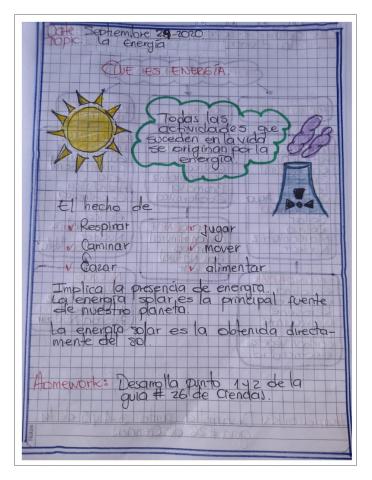 Date: Septiembre 29-2020
Topic: la energía
QUE ES ENERGÍA.
Todas las
actividades que
suceden en la vida
se originan por la
energía.
El hecho de
✓ Respirar
✓ Caminar
✓ Cazar
✓ jugar
✓ mover
✓ alimentar
Implica la presencia de energía.
La energía solar, es la principal fuente
de nuestro planeta.
La energía solar es la obtenida directa-
mente del sol.
Homework: Desarrolla punto 1 y 2 de la
guia # 26 de Ciencias.